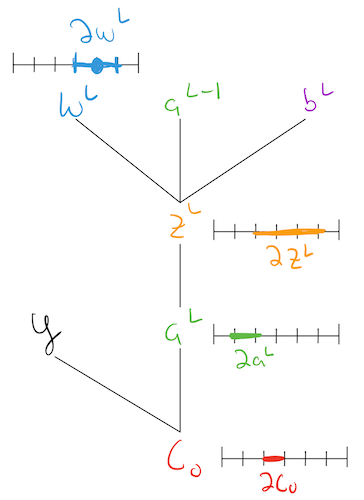 ∂w^L
w^L a^{L-1} b^L
z^L
∂z^L
y
a^L
∂a^L
C₀
∂C₀